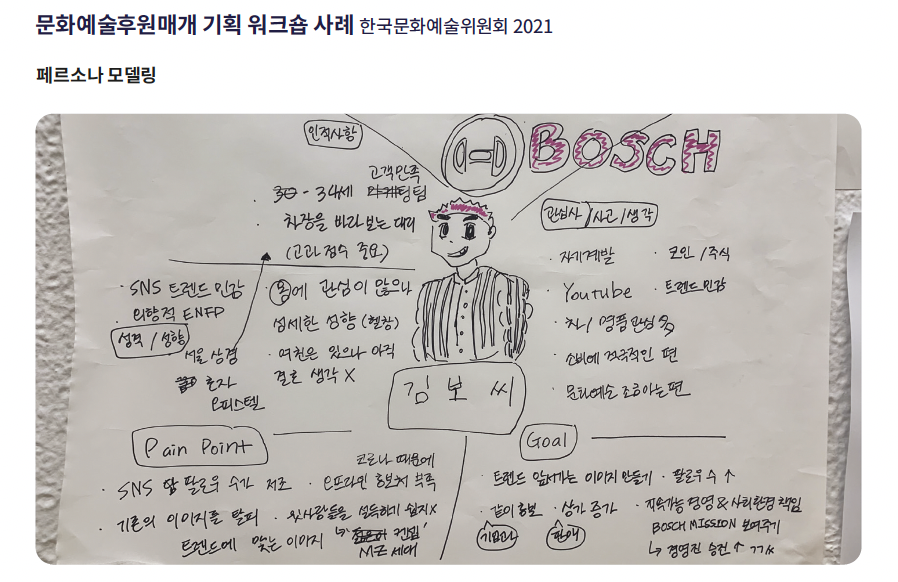 문화예술후원매개 기획 워크숍 사례 한국문화예술위원회 2021
페르소나 모델링
인적사항
BOSCH
고객만족
30 - 34세 마케팅팀
차장을 바라보는 대리
(고과 점수 중요)
관심사/사고/생각
자기계발 · 코인/주식
Youtube · 트렌드 민감
차/명품 관심 多
소비에 적극적인 편
문화예술 조금 아는 편
· SNS 트렌드 민감
외향적 ENFP
성격/성향
서울 상경
혼자
오피스텔
몸에 관심이 많으나
섬세한 성향 (헬창)
· 여친은 있으나 아직
결혼 생각 X
김 보 씨
Pain Point
· SNS 팔로우 수가 저조
코로나 때문에
· 오프라인 홍보처 부족
· 기존의 이미지를 탈피
트렌드에 맞는 이미지
· 윗사람들을 설득하기 쉽지X
MZ 세대
Goal
· 트렌드 앞서가는 이미지 만들기 · 팔로우 수 ↑
· 같이 홍보 · 상가 증가
판매
· 지속가능 경영 & 사회환경 책임
BOSCH MISSION 보여주기
↳ 경영진 승진 ↑ ㄱㄱㅆ